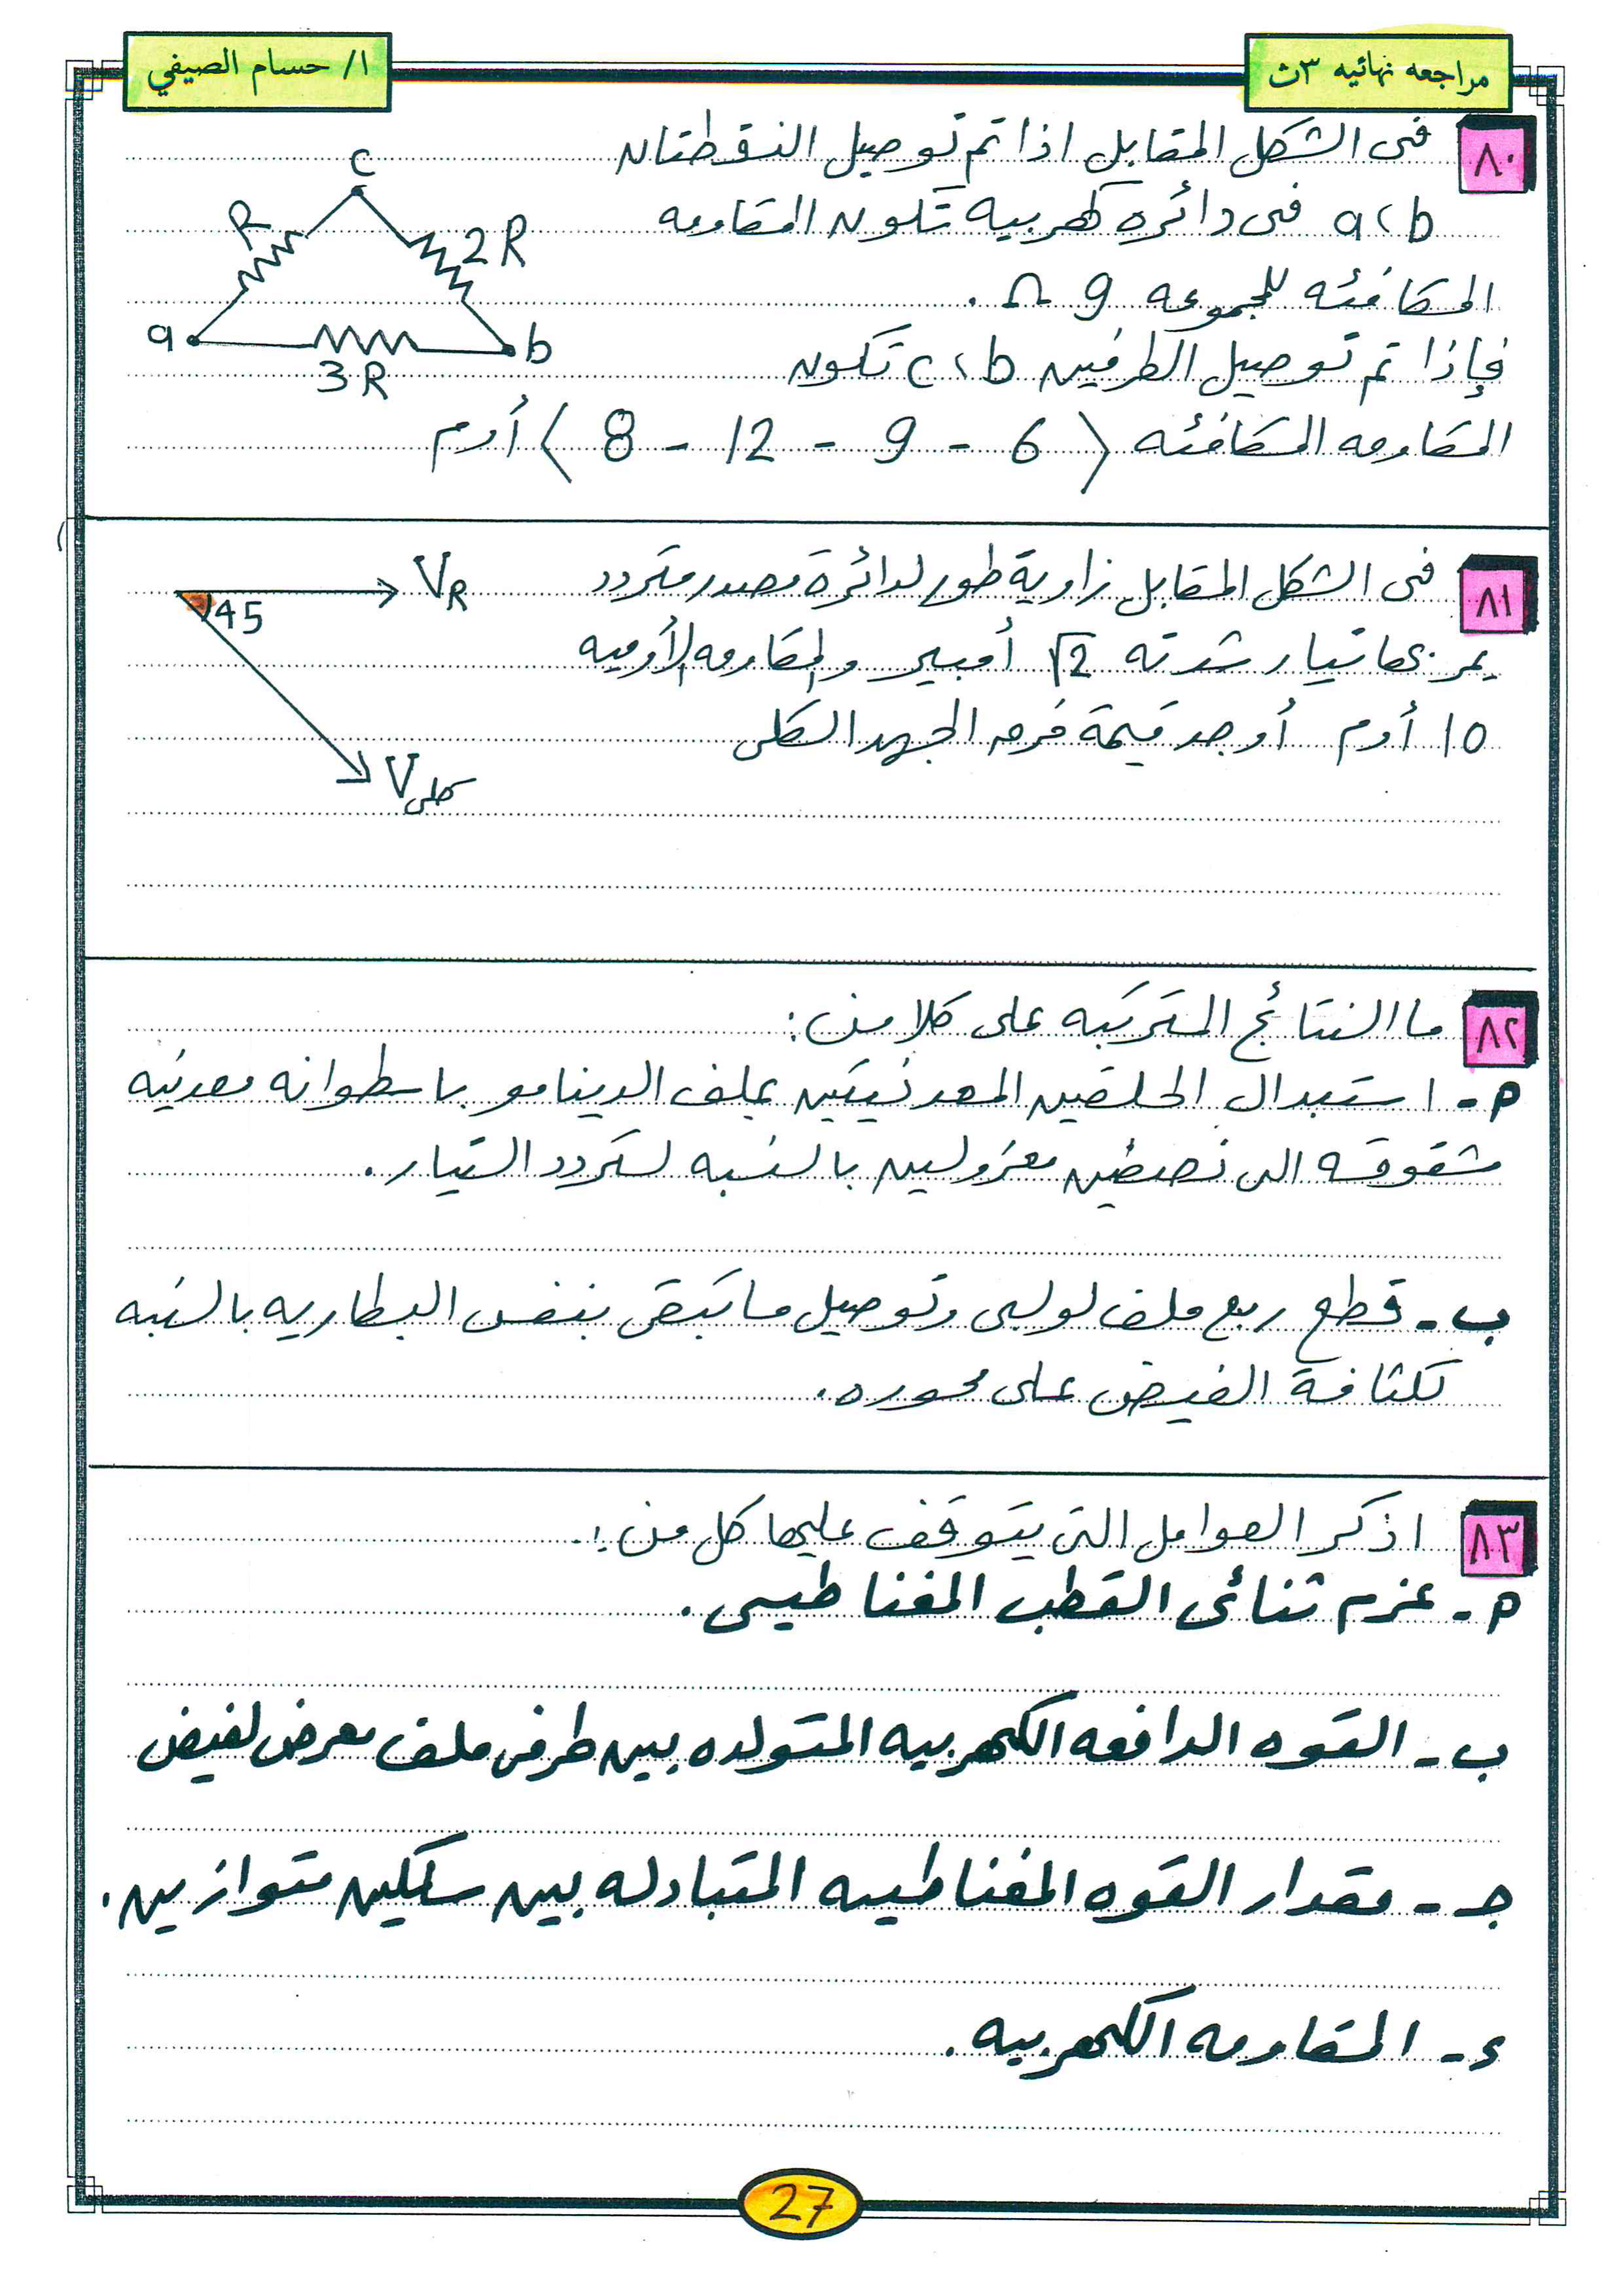 مراجعه نهائيه ٣ث
ا/ حسام الصيفي
٨٠ فى الشكل المقابل اذا تم توصيل النقطتان
a، b فى دائره كهربيه تكون المقاومه
المكافئه للمجموعه 9 Ω .
فإذا تم توصيل الطرفين c، b تكون
المقاومه المكافئه ( 6 - 9 - 12 - 8 ) أوم
c
R
2R
a
b
3R
٨١ فى الشكل المقابل زاوية طور لدائرة مصدر متردد
يمر بها تيار شدته √2 أمبير والمقاومه الأوميه
١٥ أوم أوجد قيمة فرق الجهد الكلى
VR
45
Vكلى
٨٢ ما النتائج المترتبه على كلا من :
م - استبدال الحلقتين المعدنيتين بملف الدينامو باسطوانه معدنيه
مشقوقه الى نصفين معزولين بالنسبه لتردد التيار .
ب - قطع ربع ملف لولبى وتوصيل ما تبقى بنفس البطاريه بالنسبه
لكثافة الفيض على محوره .
٨٣ اذكر العوامل التى يتوقف عليها كل من :
م - عزم ثنائى القطب المغناطيسى .
ب - القوه الدافعه الكهربيه المتولده بين طرفى ملف معرض لفيض
جـ - مقدار القوه المغناطيسيه المتبادله بين سلكين متوازيين .
ء - المقاومه الكهربيه .
27